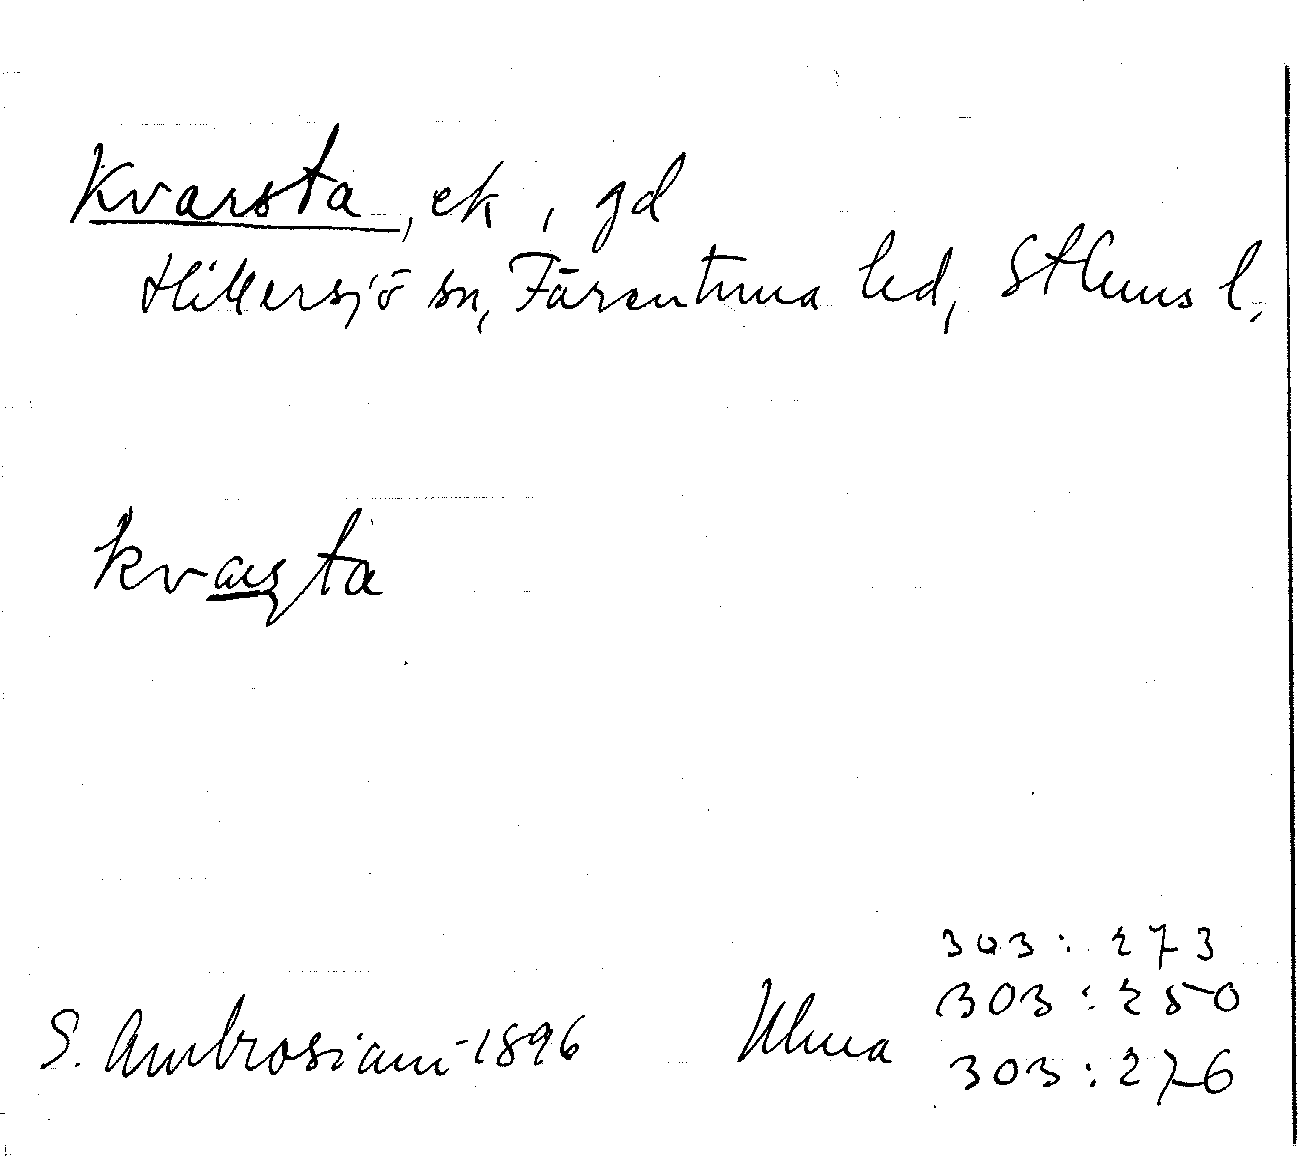 Kvarsta, ek, gd
Hillersjö sn, Färentuna hd, Sthms l.
kvaʂta
S. Ambrosiani 1896
Ulma
303: 273
303: 250
303: 276